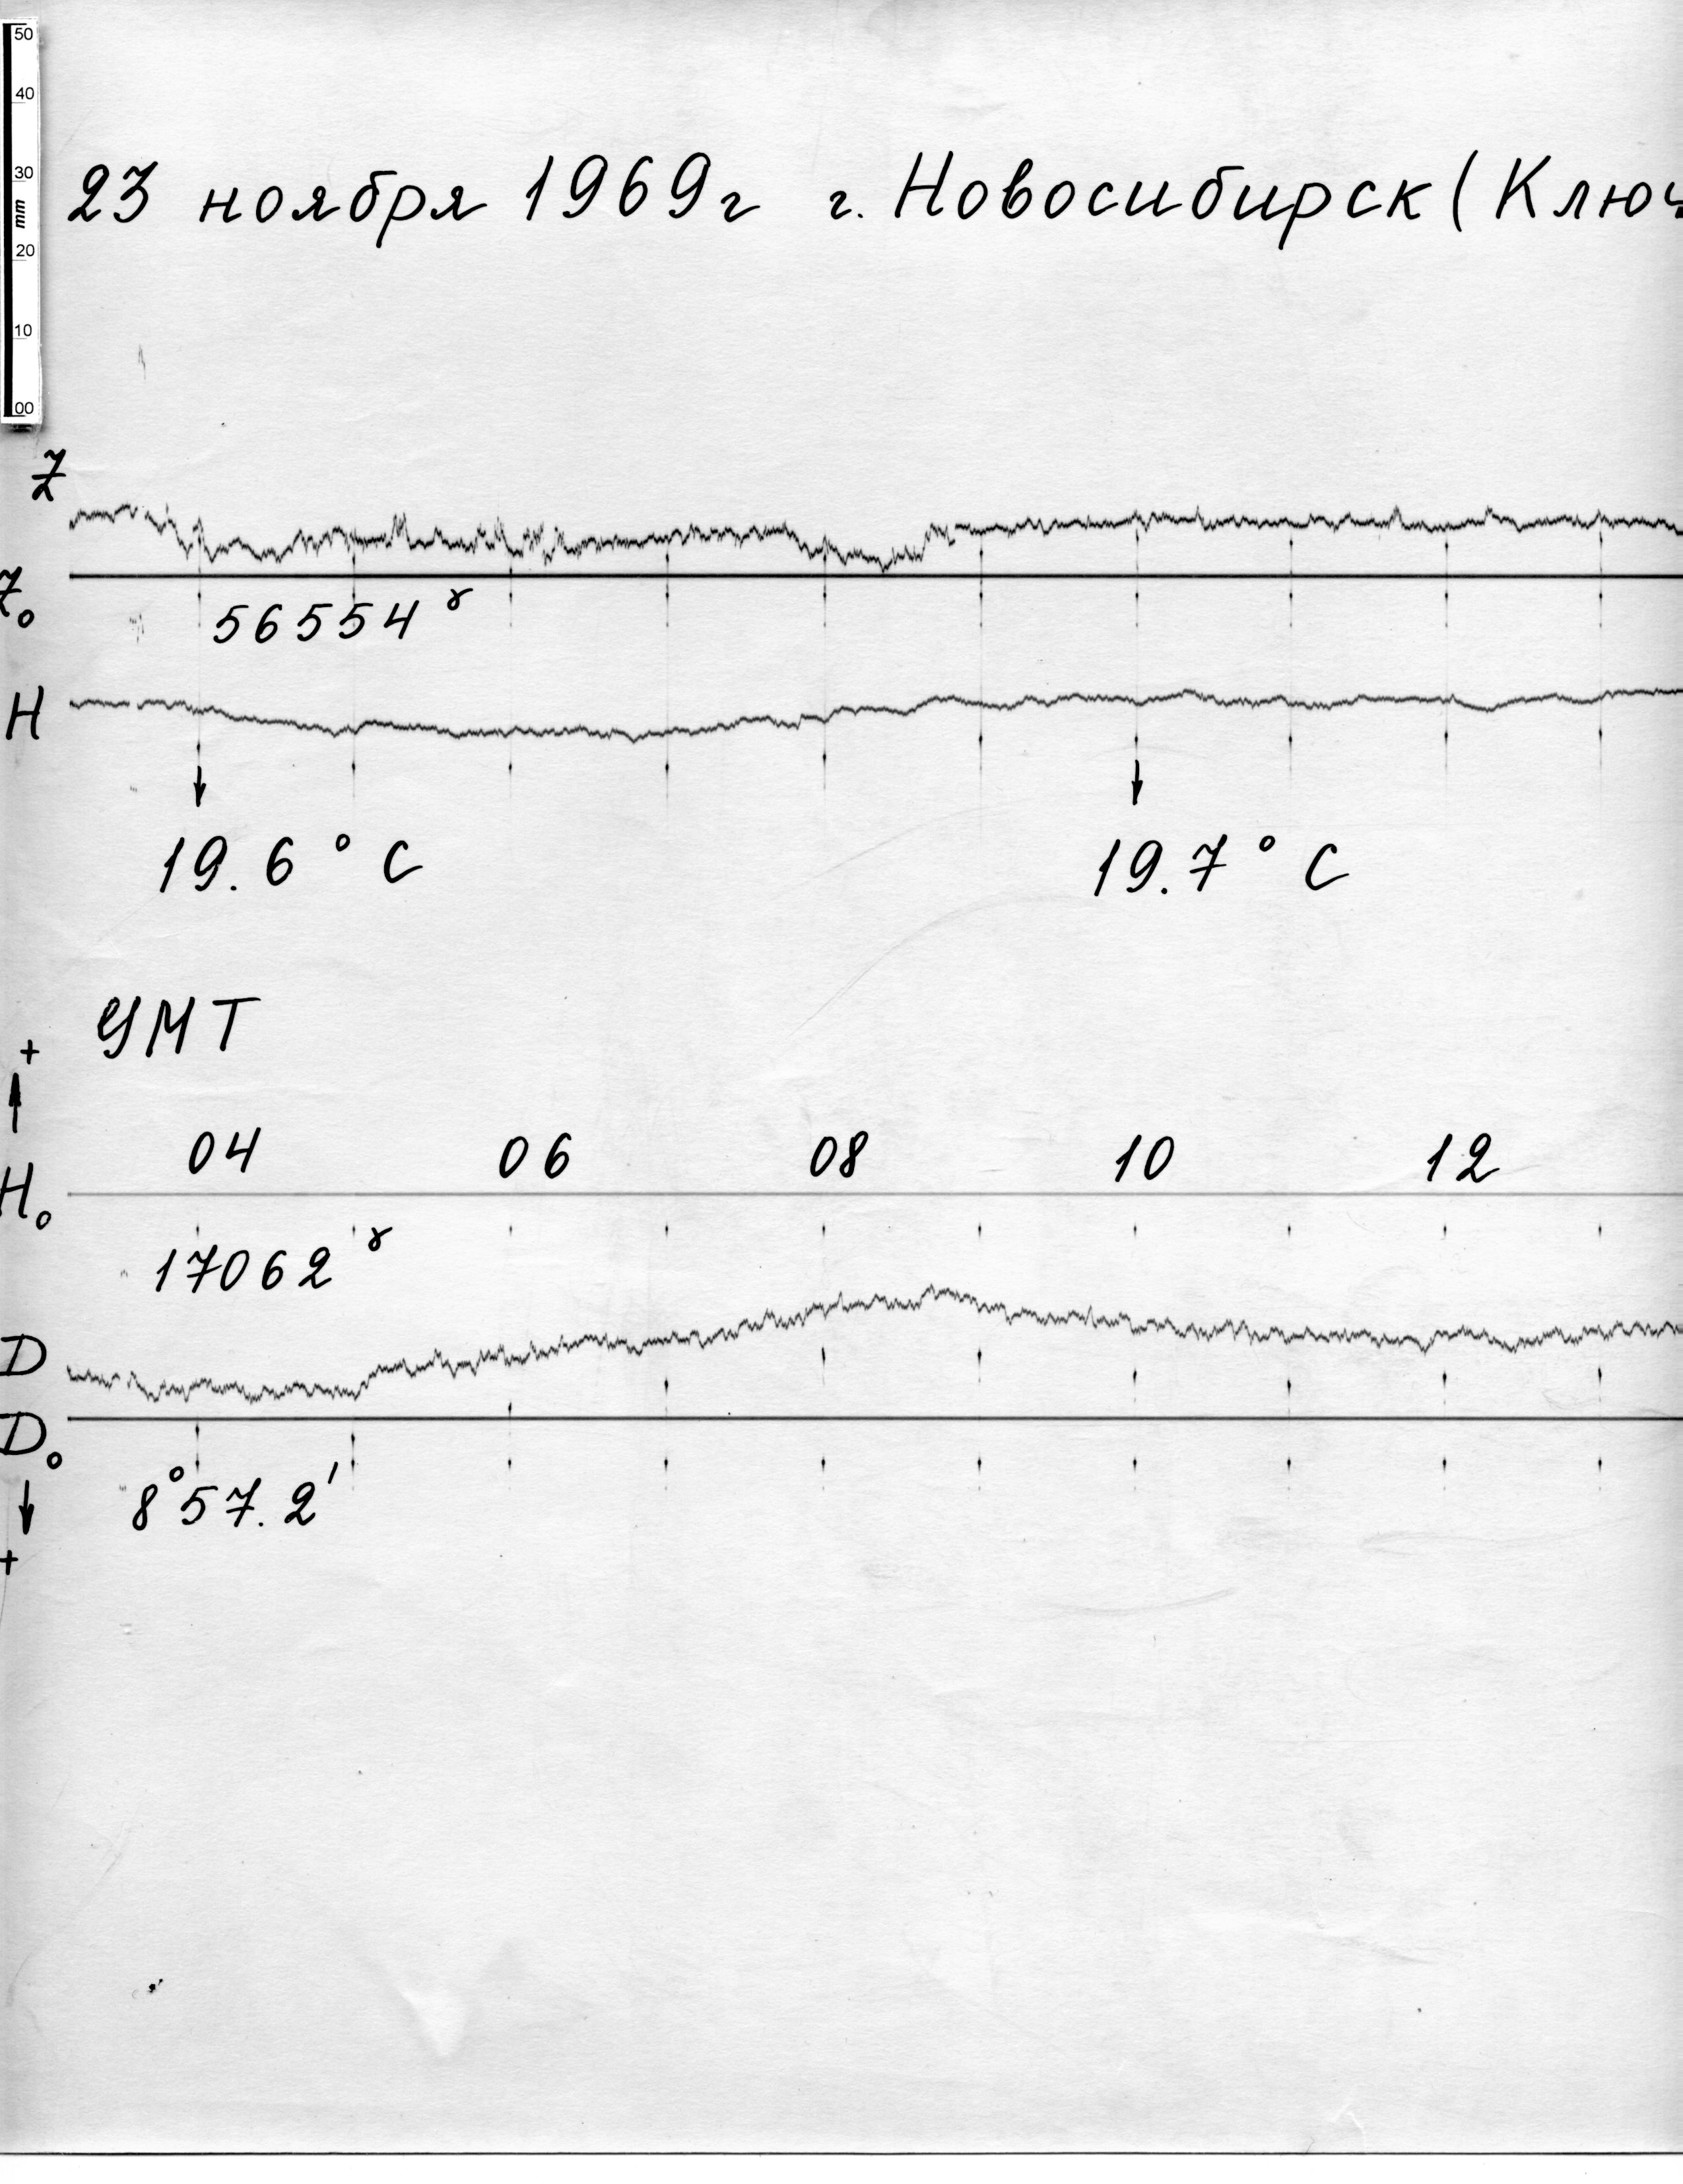 50
40
30
mm
20
10
00
23 ноября 1969г г. Новосибирск (Ключ
Z
Z₀
56554 ɣ
H
19.6 ° C
19.7 ° C
УМТ
+
04 06 08 10 12
H₀
17062 ɣ
D
D₀
8°57.2'
+